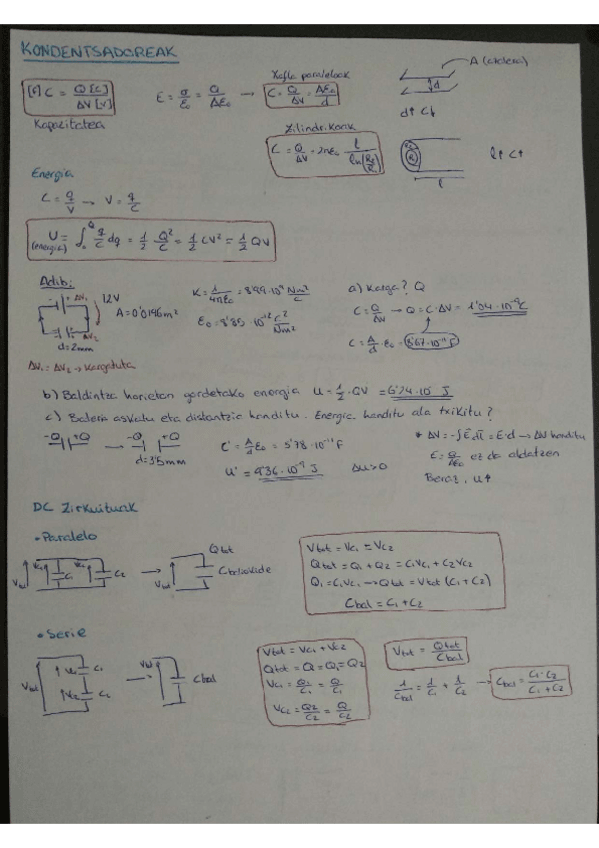 KONDENTSADOREAK
[F] C = Q [C] / ΔV [V]
Kapazitatea
E = σ/ε₀ = Q/Aε₀ → Xafla paraleloak C = Q/ΔV = Aε₀/d
A (azalera)
d
d↑ C↓
Zilindrikoak
C = Q/ΔV = 2πε₀ l / ln(R₂/R₁)
l
l↑ C↑
Energia
C = q/V → V = q/C
U = ∫₀^Q q/C dq = 1/2 Q²/C = 1/2 CV² = 1/2 QV
(energia)
Adib:
ΔV₁ 12V
A = 0'0196 m²
ΔV₂
d = 2mm
ΔV₁ = ΔV₂ → Kargatuta
K = 1/4πε₀ = 8'99·10⁹ Nm²/C
ε₀ = 8'85·10⁻¹² C²/Nm²
a) Karga? Q
C = Q/ΔV → Q = C·ΔV = 1'04·10⁻⁹C
C = A/d · ε₀ = 8'67·10⁻¹¹F
b) Baldintza horietan gordetako energia U = 1/2·QV = 6'24·10⁻⁹ J
c) Bateria askatu eta distantzia handitu. Energia handitu ala txikitu?
-Q +Q → -Q +Q
d = 3'5mm
C' = A/d ε₀ = 5'78·10⁻¹¹F
U' = 9'36·10⁻⁹ J ΔU>0
* ΔV = -∫E dl = E·d → ΔV handitu
E = Q/Aε₀ ez da aldatzen
Beraz, U↑
DC Zirkuituak
• Paralelo
Vtot Vc₁ C₁ Vc₂ C₂ → Vtot Qtot Cbaliokide
Vtot = Vc₁ = Vc₂
Qtot = Q₁ + Q₂ = C₁Vc₁ + C₂Vc₂
Q₁ = C₁Vc₁ → Qtot = Vtot (C₁ + C₂)
Cbal = C₁ + C₂
• Serie
Vtot Vc₁ C₁ Vc₂ C₂ → Vtot Cbal
Vtot = Vc₁ + Vc₂
Qtot = Q = Q₁ = Q₂
Vc₁ = Q₁/C₁ = Q/C₁
Vc₂ = Q₂/C₂ = Q/C₂
Vtot = Qtot/Cbal
1/Cbal = 1/C₁ + 1/C₂ → Cbal = C₁·C₂/C₁+C₂